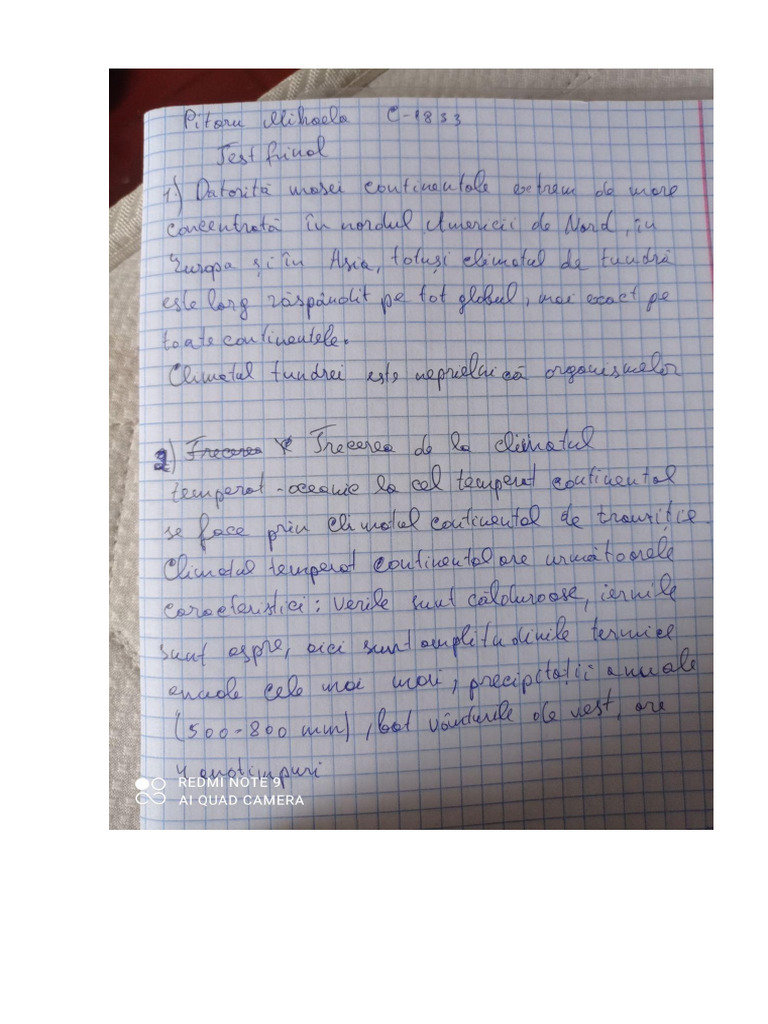 Pitoru Mihaela C-1833
Test final
1.) Datorită masei continentale extrem de mare
concentrată în nordul Americii de Nord, în
Europa și în Asia, totuși climatul de tundră
este larg răspândit pe tot globul, mai exact pe
toate continentele.
Climatul tundrei este neprielnică organismelor
2) Trecerea Trecerea de la climatul
temperat-oceanic la cel temperat continental
se face prin climatul continental de tranziție.
Climatul temperat continental are următoarele
caracteristici: verile sunt călduroase, iernile
sunt aspre, aici sunt amplitudinile termice
anuale cele mai mari, precipitații anuale
(500-800 mm), bat vânturile de vest, are
4 anotimpuri
REDMI NOTE 9
AI QUAD CAMERA